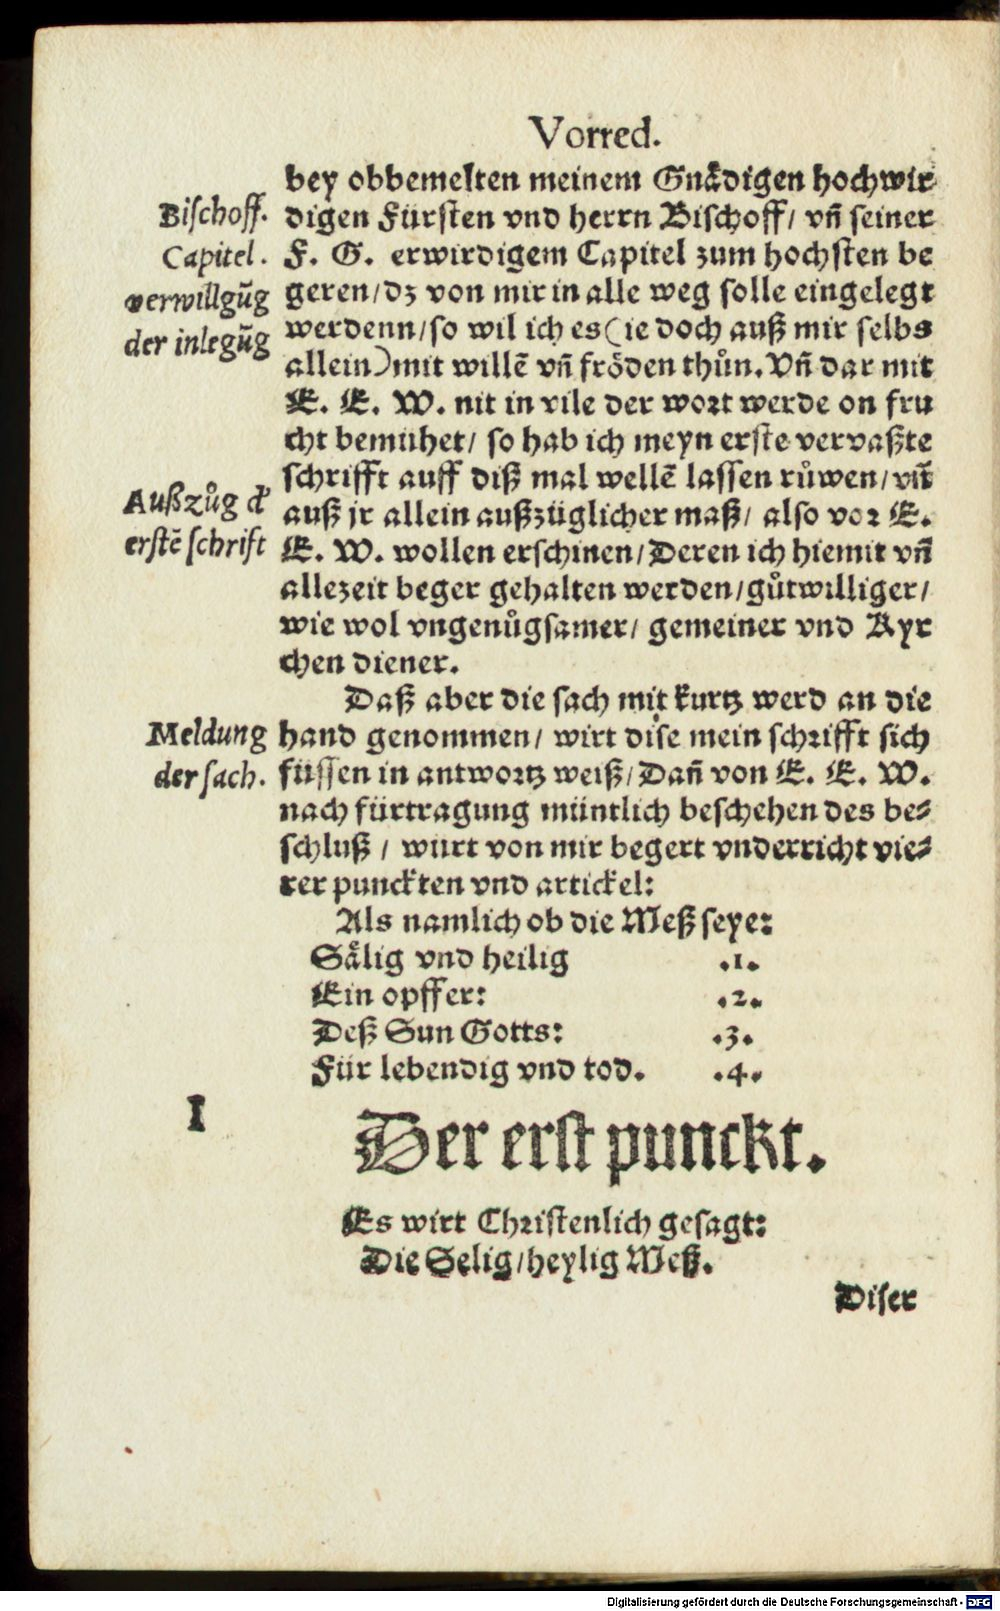 Vorred.
bey obbemelten meinem Gnådigen hochwir-
digen Fürsten vnd herrn Bischoff/ vn̄ seiner
F. G. erwirdigem Capitel zum hochsten be
geren/dz von mir in alle weg solle eingelegt
werdenn/so wil ich es(ie doch auß mir selbs
allein)mit willē vn̄ fröden thůn. Vn̄ dar mit
E. E. W. nit in vile der wort werde on fru
cht bemühet/ so hab ich meyn erste vervaßte
schrifft auff diß mal wellē lassen růwen/vn̄
auß jr allein außzüglicher maß/ also vor E.
E. W. wollen erschinen/Deren ich hiemit vn̄
allezeit beger gehalten werden/gůtwilliger/
wie wol vngenůgsamer/ gemeiner vnd Kyr
chen diener.
Daß aber die sach mit kurtz werd an die
hand genommen/ wirt dise mein schrifft sich
füssen in antwortz weiß/Dan̄ von E. E. W.
nach fürtragung müntlich beschehen des be-
schluß / wurt von mir begert vnderricht vie-
rer punckten vnd artickel:
Als namlich ob die Meß seye:
Sålig vnd heilig .1.
Ein opffer: .2.
Deß Sun Gotts: .3.
Für lebendig vnd tod. .4.
Der erst punckt.
Es wirt Christenlich gesagt:
Die Selig/heylig Meß.
Diser
Bischoff.
Capitel.
verwillgūg
der inlegūg
Außzůg ď
erstē schrift
Meldung
der sach.
I
Digitalisierung gefördert durch die Deutsche Forschungsgemeinschaft - DFG